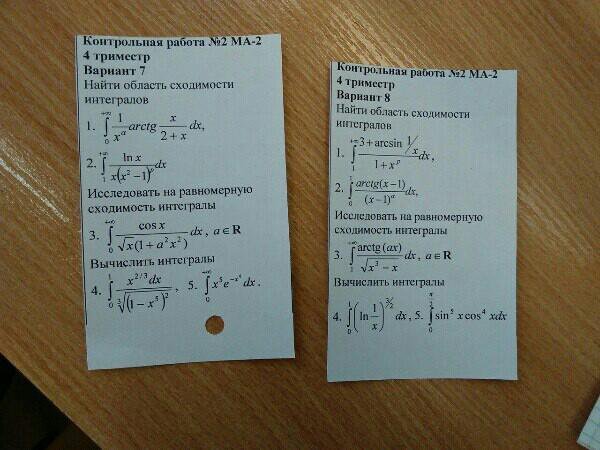 Контрольная работа №2 МА-2
4 триместр
Вариант 7
Найти область сходимости
интегралов
1. ∫₀^{+∞} 1/x^α arctg x/(2 + x) dx,
2. ∫₁^{+∞} ln x/(x(x² − 1)^p) dx
Исследовать на равномерную
сходимость интегралы
3. ∫₀^{+∞} cos x/(√x(1 + a²x²)) dx, a ∈ R
Вычислить интегралы
4. ∫₀^1 x^{2/3}dx/∛((1 − x⁵)²), 5. ∫₀^{+∞} x⁵e^{−x⁴}dx.
Контрольная работа №2 МА-2
4 триместр
Вариант 8
Найти область сходимости
интегралов
1. ∫₁^{+∞} (3 + arcsin 1/x)/(1 + x^p) dx,
2. ∫₀^1 arctg(x − 1)/(x − 1)^α dx,
Исследовать на равномерную
сходимость интегралы
3. ∫₁^{+∞} arctg(ax)/√(x³ − x) dx, a ∈ R
Вычислить интегралы
4. ∫₀^1 (ln 1/x)^{3/2} dx, 5. ∫₀^{π/2} sin⁵ x cos⁴ xdx